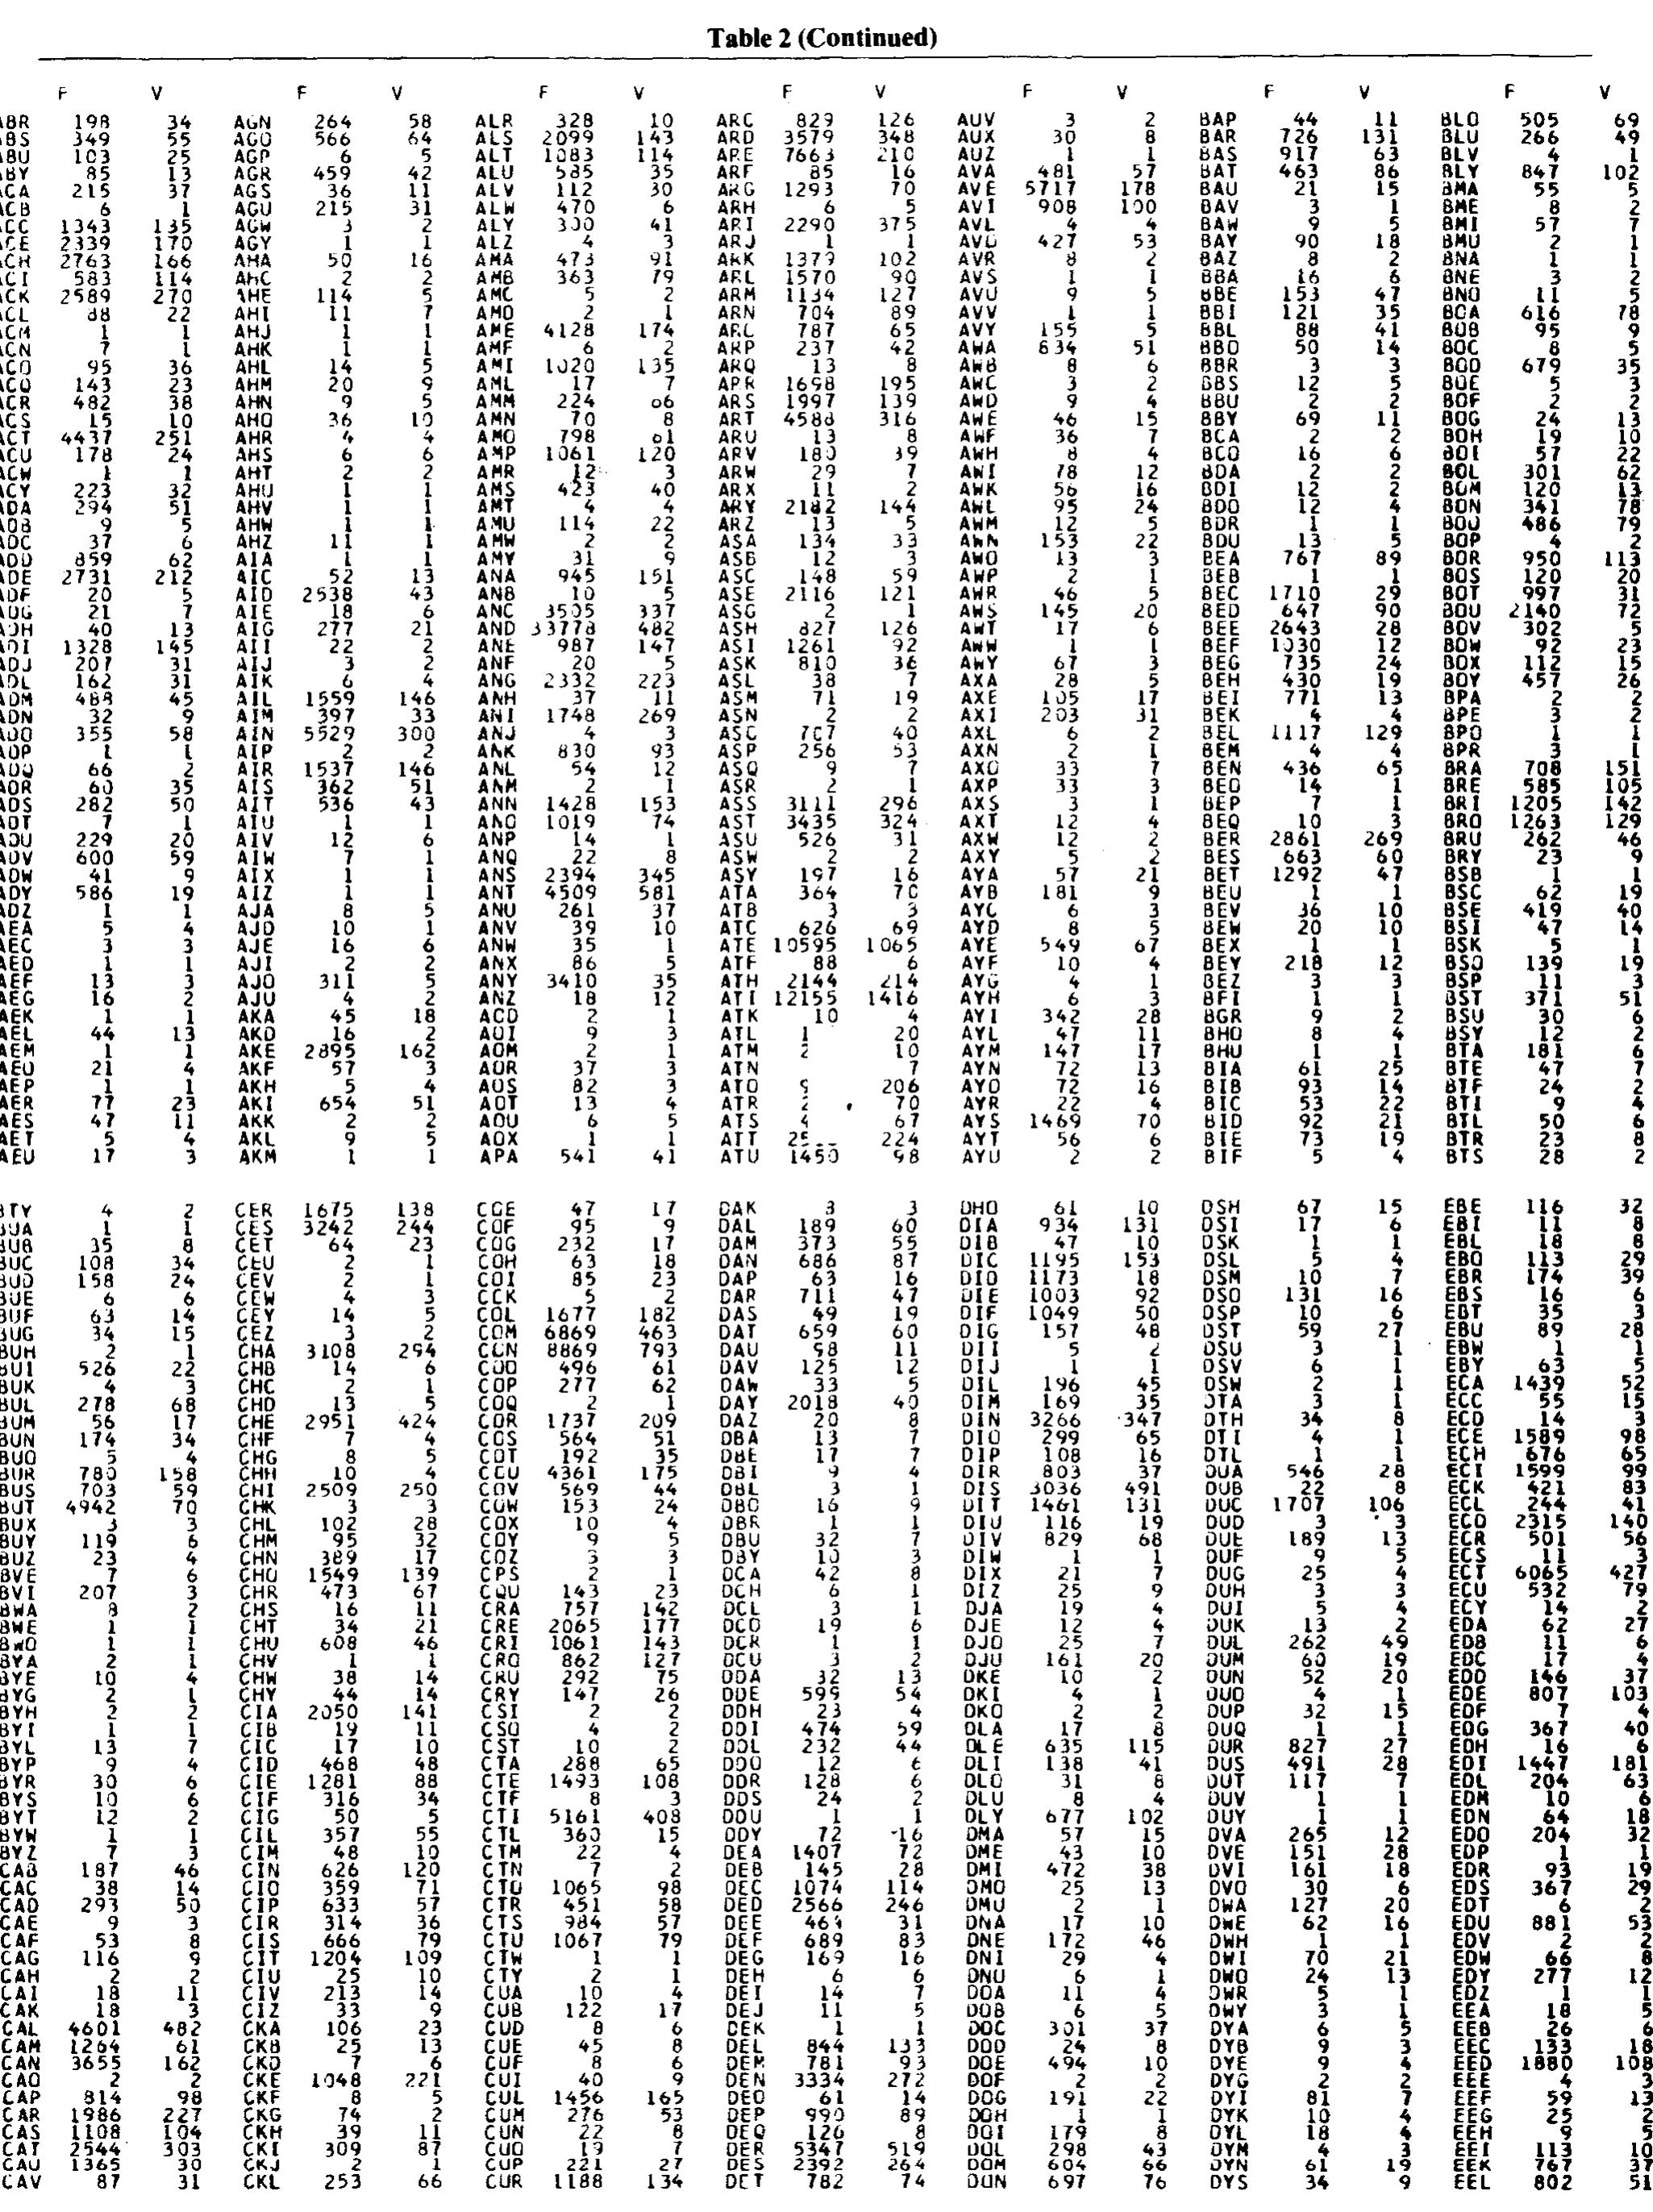 Table 2 (Continued)
F V F V F V F V F V F V F V
ABR 198 34 AGN 264 58 ALR 328 10 ARC 829 126 AUV 3 2 BAP 44 11 BLO 505 69
ABS 349 55 AGO 566 64 ALS 2099 143 ARD 3579 348 AUX 30 8 BAR 726 131 BLU 266 49
ABU 103 25 AGP 6 5 ALT 1083 114 ARE 7663 210 AUZ 1 1 BAS 917 63 BLV 4 1
ABY 85 13 AGR 459 42 ALU 585 35 ARF 85 16 AVA 481 57 BAT 463 86 BLY 847 102
ACA 215 37 AGS 36 11 ALV 112 30 ARG 1293 70 AVE 5717 178 BAU 21 15 BMA 55 5
ACB 6 1 AGU 215 31 ALW 470 6 ARH 6 5 AVI 908 100 BAV 3 1 BME 8 2
ACC 1343 135 AGW 3 2 ALY 300 41 ARI 2290 375 AVL 4 4 BAW 9 5 BMI 57 7
ACE 2339 170 AGY 1 1 ALZ 4 3 ARJ 1 1 AVO 427 53 BAY 90 18 BMU 2 1
ACH 2763 166 AHA 50 16 AMA 473 91 ARK 1379 102 AVR 8 2 BAZ 8 2 BNA 1 1
ACI 583 114 AHC 2 2 AMB 363 79 ARL 1570 90 AVS 1 1 BBA 16 6 BNE 3 2
ACK 2589 270 AHE 114 5 AMC 5 2 ARM 1134 127 AVU 9 5 BBE 153 47 BNO 11 5
ACL 38 22 AHI 11 7 AMD 2 1 ARN 704 89 AVV 1 1 BBI 121 35 BOA 616 78
ACM 1 1 AHJ 1 1 AME 4128 174 ARO 787 65 AVY 155 5 BBL 88 41 BOB 95 9
ACN 7 1 AHK 1 1 AMF 6 2 ARP 237 42 AWA 634 51 BBO 50 14 BOC 8 5
ACO 95 36 AHL 14 5 AMI 1020 135 ARQ 13 8 AWB 8 6 BBR 3 3 BOD 679 35
ACQ 143 23 AHM 20 9 AML 17 7 ARR 1698 195 AWC 3 2 BBS 12 5 BOE 5 3
ACR 482 38 AHN 9 5 AMM 224 66 ARS 1997 139 AWD 9 4 BBU 2 2 BOF 2 2
ACS 15 10 AHO 36 10 AMN 70 8 ART 4588 316 AWE 46 15 BBY 69 11 BOG 24 13
ACT 4437 251 AHR 4 4 AMO 798 61 ARU 13 8 AWF 36 7 BCA 2 2 BOH 19 10
ACU 178 24 AHS 6 6 AMP 1061 120 ARV 180 39 AWH 8 4 BCO 16 6 BOI 57 22
ACW 1 1 AHT 2 2 AMR 12 3 ARW 29 7 AWI 78 12 BDA 2 2 BOL 301 62
ACY 223 32 AHU 1 1 AMS 423 40 ARX 11 2 AWK 56 16 BDI 12 2 BOM 120 13
ADA 294 51 AHV 1 1 AMT 4 4 ARY 2182 144 AWL 95 24 BDO 12 4 BON 341 78
ADB 9 5 AHW 1 1 AMU 114 22 ARZ 13 5 AWM 12 5 BDR 1 1 BOO 486 79
ADC 37 6 AHZ 11 1 AMW 2 2 ASA 134 33 AWN 153 22 BDU 13 5 BOP 4 2
ADD 859 62 AIA 1 1 AMY 31 9 ASB 12 3 AWO 13 3 BEA 767 89 BOR 950 113
ADE 2731 212 AIC 52 13 ANA 945 151 ASC 148 59 AWP 2 1 BEB 1 1 BOS 120 20
ADF 20 5 AID 2538 43 ANB 10 5 ASE 2116 121 AWR 46 5 BEC 1710 29 BOT 997 31
ADG 21 7 AIE 18 6 ANC 3505 337 ASG 2 1 AWS 145 20 BED 647 90 BOU 2140 72
ADH 40 13 AIG 277 21 AND 33778 482 ASH 827 126 AWT 17 6 BEE 2643 28 BOV 302 5
ADI 1328 145 AII 22 2 ANE 987 147 ASI 1261 92 AWW 1 1 BEF 1030 12 BOW 92 23
ADJ 207 31 AIJ 3 2 ANF 20 5 ASK 810 36 AWY 67 3 BEG 735 24 BOX 112 15
ADL 162 31 AIK 6 4 ANG 2332 223 ASL 38 7 AXA 28 5 BEH 430 19 BOY 457 26
ADM 488 45 AIL 1559 146 ANH 37 11 ASM 71 19 AXE 105 17 BEI 771 13 BPA 2 2
ADN 32 9 AIM 397 33 ANI 1748 269 ASN 2 2 AXI 203 31 BEK 4 4 BPE 3 2
ADO 355 58 AIN 5529 300 ANJ 4 3 ASO 707 40 AXL 6 2 BEL 1117 129 BPO 1 1
ADP 1 1 AIP 2 2 ANK 830 93 ASP 256 53 AXN 2 1 BEM 4 4 BPR 3 1
ADQ 66 2 AIR 1537 146 ANL 54 12 ASQ 9 7 AXO 33 7 BEN 436 65 BRA 708 151
ADR 60 35 AIS 362 51 ANM 2 1 ASR 2 1 AXP 33 3 BEO 14 1 BRE 585 105
ADS 282 50 AIT 536 43 ANN 1428 153 ASS 3111 296 AXS 3 1 BEP 7 1 BRI 1205 142
ADT 7 1 AIU 1 1 ANO 1019 74 AST 3435 324 AXT 12 4 BEQ 10 3 BRO 1263 129
ADU 229 20 AIV 12 6 ANP 14 1 ASU 526 31 AXW 12 2 BER 2861 269 BRU 262 46
ADV 600 59 AIW 7 1 ANQ 22 8 ASW 2 2 AXY 5 2 BES 663 60 BRY 23 9
ADW 41 9 AIX 1 1 ANS 2394 345 ASY 197 16 AYA 57 21 BET 1292 47 BSB 1 1
ADY 586 19 AIZ 1 1 ANT 4509 581 ATA 364 70 AYB 181 9 BEU 1 1 BSC 62 19
ADZ 1 1 AJA 8 5 ANU 261 37 ATB 3 3 AYC 6 3 BEV 36 10 BSE 419 40
AEA 5 4 AJD 10 1 ANV 39 10 ATC 626 69 AYD 8 5 BEW 20 10 BSI 47 14
AEC 3 3 AJE 16 6 ANW 35 1 ATE 10595 1065 AYE 549 67 BEX 1 1 BSK 5 1
AED 1 1 AJI 2 2 ANX 86 5 ATF 88 6 AYF 10 4 BEY 218 12 BSO 139 19
AEF 13 3 AJO 311 5 ANY 3410 35 ATH 2144 214 AYG 4 1 BEZ 3 3 BSP 11 3
AEG 16 2 AJU 4 2 ANZ 18 12 ATI 12155 1416 AYH 6 3 BFI 1 1 BST 371 51
AEK 1 1 AKA 45 18 AOD 2 1 ATK 10 4 AYI 342 28 BGR 9 2 BSU 30 6
AEL 44 13 AKD 16 2 AOI 9 3 ATL 20 AYL 47 11 BHO 8 4 BSY 12 2
AEM 1 1 AKE 2895 162 AOM 2 1 ATM 10 AYM 147 17 BHU 1 1 BTA 181 6
AEO 21 4 AKF 57 3 AOR 37 3 ATN 7 AYN 72 13 BIA 61 25 BTE 47 7
AEP 1 1 AKH 5 4 AOS 82 3 ATO 206 AYO 72 16 BIB 93 14 BTF 24 2
AER 77 23 AKI 654 51 AOT 13 4 ATR 70 AYR 22 4 BIC 53 22 BTI 9 4
AES 47 11 AKK 2 2 AOU 6 5 ATS 67 AYS 1469 70 BID 92 21 BTL 50 6
AET 5 4 AKL 9 5 AOX 1 1 ATT 224 AYT 56 6 BIE 73 19 BTR 23 8
AEU 17 3 AKM 1 1 APA 541 41 ATU 1450 98 AYU 2 2 BIF 5 4 BTS 28 2
BTY 4 2 CER 1675 138 COE 47 17 DAK 3 3 DHO 61 10 DSH 67 15 EBE 116 32
BUA 1 1 CES 3242 244 COF 95 9 DAL 189 60 DIA 934 131 DSI 17 6 EBI 11 8
BUB 35 8 CET 64 23 COG 232 17 DAM 373 55 DIB 47 10 DSK 1 1 EBL 18 8
BUC 108 34 CEU 2 1 COH 63 18 DAN 686 87 DIC 1195 153 DSL 5 4 EBO 113 29
BUD 158 24 CEV 2 1 COI 85 23 DAP 63 16 DID 1173 18 DSM 10 7 EBR 174 39
BUE 6 6 CEW 4 3 COK 5 2 DAR 711 47 DIE 1003 92 DSO 131 16 EBS 16 6
BUF 63 14 CEY 14 5 COL 1677 182 DAS 49 19 DIF 1049 50 DSP 10 6 EBT 35 3
BUG 34 15 CEZ 3 2 COM 6869 463 DAT 659 60 DIG 157 48 DST 59 27 EBU 89 28
BUH 2 1 CHA 3108 294 CON 8869 793 DAU 98 11 DII 5 2 DSU 3 1 EBW 1 1
BUI 526 22 CHB 14 6 COO 496 61 DAV 125 12 DIJ 1 1 DSV 6 1 EBY 63 5
BUK 4 3 CHC 2 1 COP 277 62 DAW 33 5 DIL 196 45 DSW 2 1 ECA 1439 52
BUL 278 68 CHD 13 5 COQ 2 1 DAY 2018 40 DIM 169 35 DTA 3 1 ECC 55 15
BUM 56 17 CHE 2951 424 COR 1737 209 DAZ 20 8 DIN 3266 347 DTH 34 8 ECD 14 3
BUN 174 34 CHF 7 4 COS 564 51 DBA 13 7 DIO 299 65 DTI 4 1 ECE 1589 98
BUO 5 4 CHG 8 5 COT 192 35 DBE 17 7 DIP 108 16 DTL 1 1 ECH 676 65
BUR 780 158 CHH 10 4 COU 4361 175 DBI 9 4 DIR 803 37 DUA 546 28 ECI 1599 99
BUS 703 59 CHI 2509 250 COV 569 44 DBL 3 1 DIS 3036 491 DUB 22 8 ECK 421 83
BUT 4942 70 CHK 3 3 COW 153 24 DBO 16 9 DIT 1461 131 DUC 1707 106 ECL 244 41
BUX 3 3 CHL 102 28 COX 10 4 DBR 1 1 DIU 116 19 DUD 3 3 ECO 2315 140
BUY 119 6 CHM 95 32 COY 9 5 DBU 32 7 DIV 829 68 DUE 189 13 ECR 501 56
BUZ 23 4 CHN 389 17 COZ 3 3 DBY 10 3 DIW 1 1 DUF 9 5 ECS 11 3
BVE 7 6 CHO 1549 139 CPS 2 1 DCA 42 8 DIX 21 7 DUG 25 4 ECT 6065 427
BVI 207 3 CHR 473 67 CQU 143 23 DCH 6 1 DIZ 25 9 DUH 3 3 ECU 532 79
BWA 8 2 CHS 16 11 CRA 757 142 DCL 3 1 DJA 19 4 DUI 5 4 ECY 14 2
BWE 1 1 CHT 34 21 CRE 2065 177 DCO 19 6 DJE 12 4 DUK 13 2 EDA 62 27
BWO 1 1 CHU 608 46 CRI 1061 143 DCR 1 1 DJO 25 7 DUL 262 49 EDB 11 6
BYA 2 1 CHV 1 1 CRO 862 127 DCU 3 2 DJU 161 20 DUM 60 19 EDC 17 4
BYE 10 4 CHW 38 14 CRU 292 75 DDA 32 13 DKE 10 2 DUN 52 20 EDD 146 37
BYG 2 1 CHY 44 14 CRY 147 26 DDE 599 54 DKI 4 1 DUO 4 1 EDE 807 103
BYH 2 2 CIA 2050 141 CSI 2 2 DDH 23 4 DKO 2 2 DUP 32 15 EDF 7 4
BYI 1 1 CIB 19 11 CSO 4 2 DDI 474 59 DLA 17 8 DUQ 1 1 EDG 367 40
BYL 13 7 CIC 17 10 CST 10 2 DDL 232 44 DLE 635 115 DUR 827 27 EDH 16 6
BYP 9 4 CID 468 48 CTA 288 65 DDO 12 6 DLI 138 41 DUS 491 28 EDI 1447 181
BYR 30 6 CIE 1281 88 CTE 1493 108 DDR 128 6 DLO 31 8 DUT 117 7 EDL 204 63
BYS 10 6 CIF 316 34 CTF 8 3 DDS 24 2 DLU 8 4 DUV 1 1 EDM 10 6
BYT 12 2 CIG 50 5 CTI 5161 408 DDU 1 1 DLY 677 102 DUY 1 1 EDN 64 18
BYW 1 1 CIL 357 55 CTL 360 15 DDY 72 16 DMA 57 15 DVA 265 12 EDO 204 32
BYZ 7 3 CIM 48 10 CTM 22 4 DEA 1407 72 DME 43 10 DVE 151 28 EDP 1 1
CAB 187 46 CIN 626 120 CTN 7 2 DEB 145 28 DMI 472 38 DVI 161 18 EDR 93 19
CAC 38 14 CIO 359 71 CTO 1065 98 DEC 1074 114 DMO 25 13 DVO 30 6 EDS 367 29
CAD 293 50 CIP 633 57 CTR 451 58 DED 2566 246 DMU 2 1 DWA 127 20 EDT 6 2
CAE 9 3 CIR 314 36 CTS 984 57 DEE 464 31 DNA 17 10 DWE 62 16 EDU 881 53
CAF 53 8 CIS 666 79 CTU 1067 79 DEF 689 83 DNE 172 46 DWH 1 1 EDV 2 2
CAG 116 9 CIT 1204 109 CTW 1 1 DEG 169 16 DNI 29 4 DWI 70 21 EDW 66 8
CAH 2 2 CIU 25 10 CTY 2 1 DEH 6 6 DNU 6 1 DWO 24 13 EDY 277 12
CAI 18 11 CIV 213 14 CUA 10 4 DEI 14 7 DOA 11 4 DWR 5 1 EDZ 1 1
CAK 18 3 CIZ 33 9 CUB 122 17 DEJ 11 5 DOB 6 5 DWY 3 1 EEA 18 5
CAL 4601 482 CKA 106 23 CUD 8 6 DEK 1 1 DOC 301 37 DYA 6 5 EEB 26 6
CAM 1264 61 CKB 25 13 CUE 45 8 DEL 844 133 DOD 24 8 DYB 9 3 EEC 133 18
CAN 3655 162 CKD 7 6 CUF 8 6 DEM 781 93 DOE 494 10 DYE 9 4 EED 1880 108
CAO 2 2 CKE 1048 221 CUI 40 9 DEN 3334 272 DOF 2 2 DYG 2 2 EEE 4 3
CAP 814 98 CKF 8 5 CUL 1456 165 DEO 61 14 DOG 191 22 DYI 81 7 EEF 59 13
CAR 1986 227 CKG 74 2 CUM 276 53 DEP 990 89 DOH 1 1 DYK 10 4 EEG 25 2
CAS 1108 104 CKH 39 11 CUN 22 8 DEQ 126 8 DOI 179 8 DYL 18 4 EEH 9 5
CAT 2544 303 CKI 309 87 CUO 19 7 DER 5347 519 DOL 298 43 DYM 4 3 EEI 113 10
CAU 1365 30 CKJ 2 1 CUP 221 27 DES 2392 264 DOM 604 66 DYN 61 19 EEK 767 37
CAV 87 31 CKL 253 66 CUR 1188 134 DET 782 74 DON 697 76 DYS 34 9 EEL 802 51